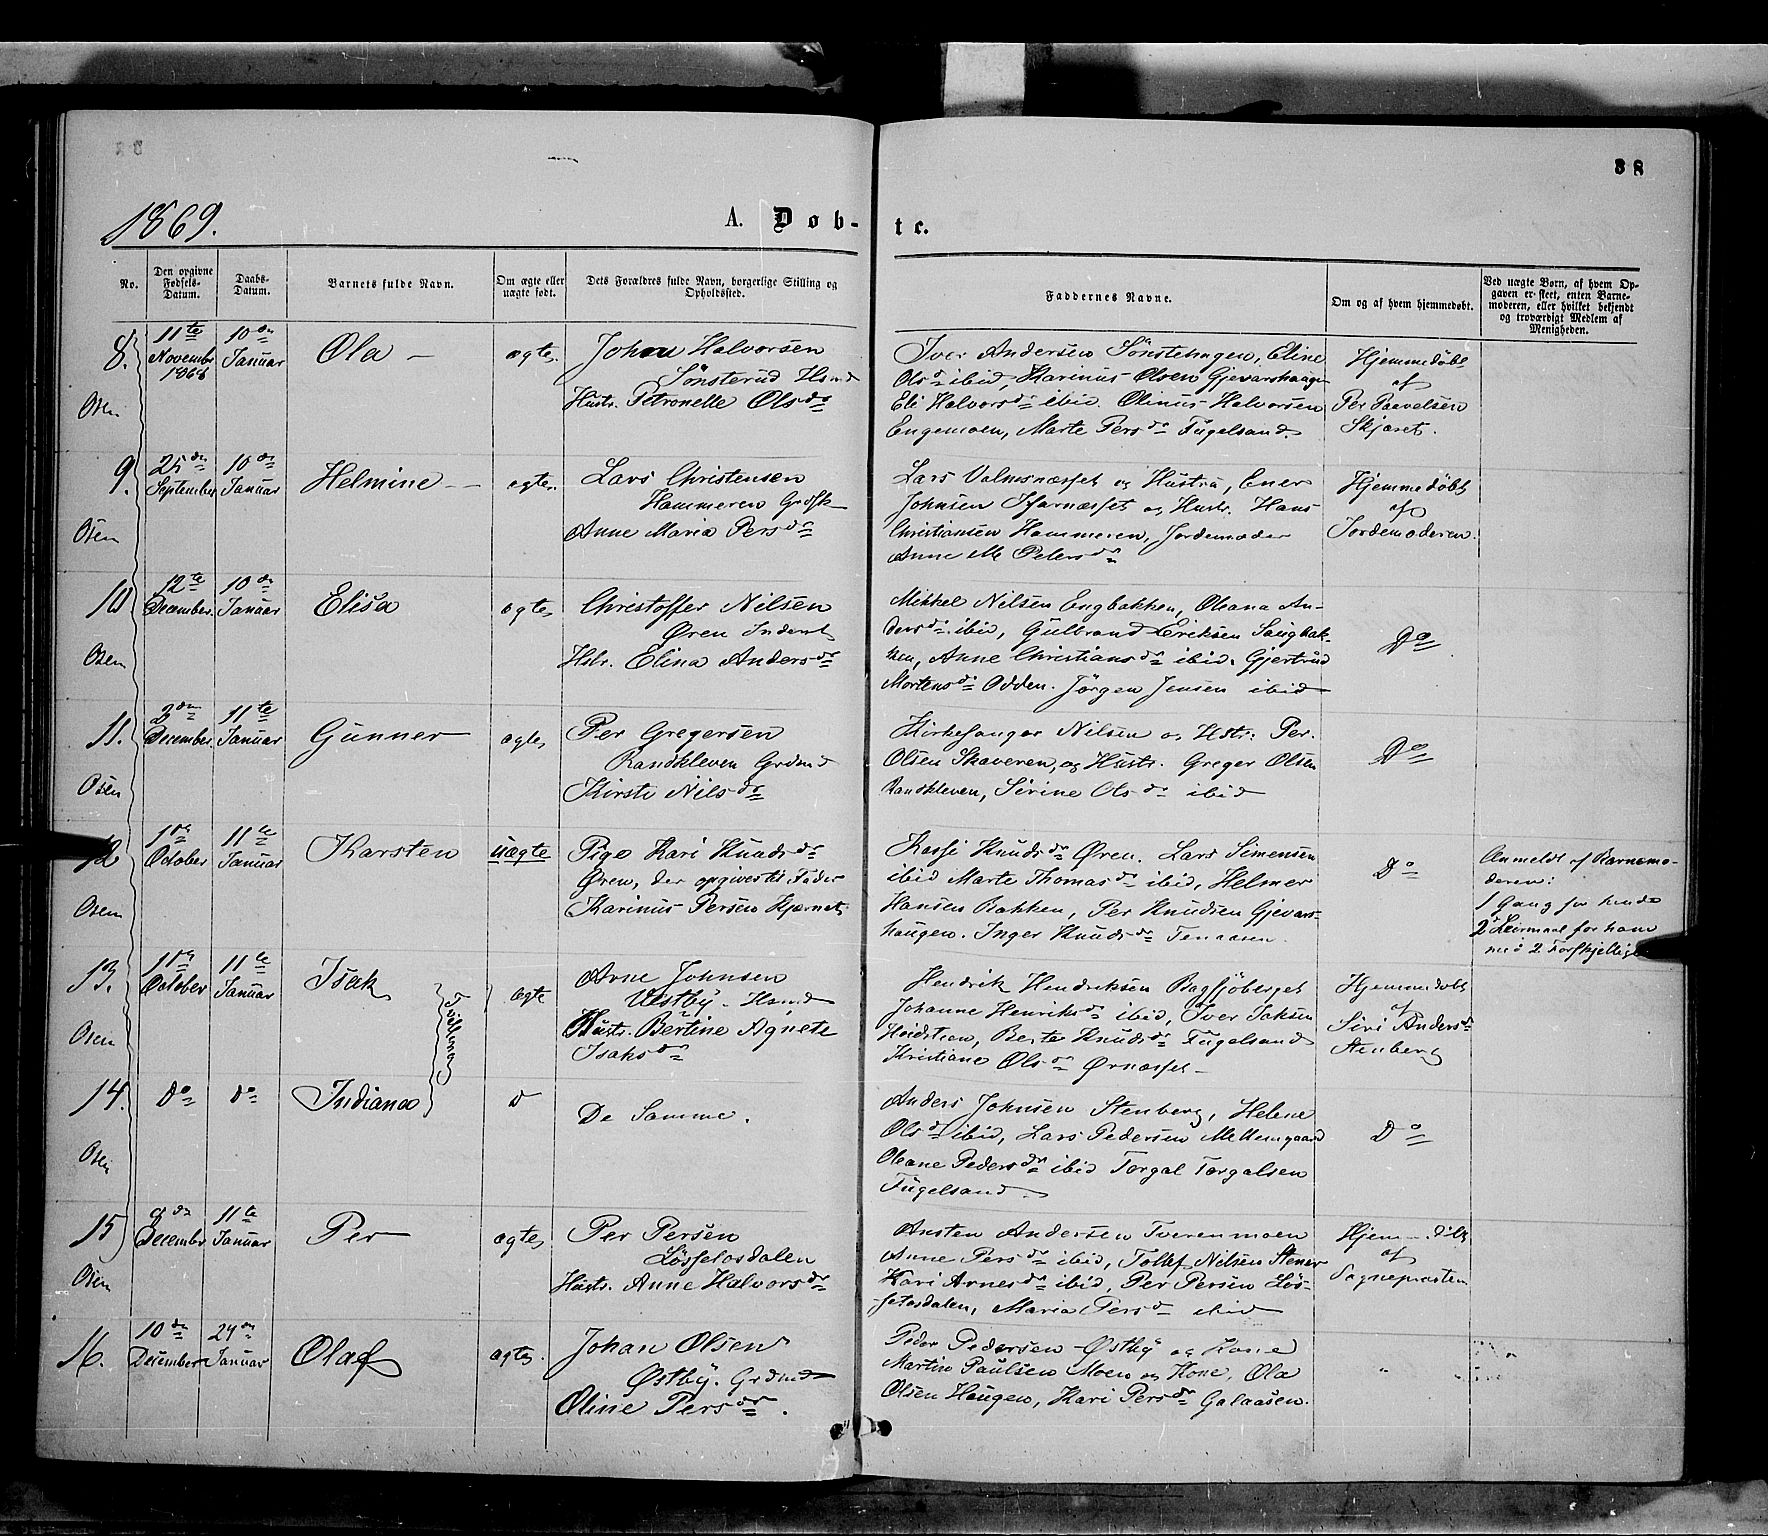 38
1869.
A. Døb-
te.
No.
Den opgivne Fødsels-Datum.
Daabs-Datum.
Barnets fulde Navn.
Om ægte eller uægte født.
Dets Forældres fulde Navn, borgerlige Stilling og Opholdssted.
Faddernes Navne.
Om og af hvem hjemmedøbt.
Ved uægte Børn, af hvem Opgaven er skeet, enten Barnemoderen, eller hvilket bekjendt og troværdigt Medlem af Menigheden.
8.
Osen
11te Novembr 1868
10de Januar
Ola
ægte.
Johan Halvorsen
Sønsterud Hsmd
Hustr. Petronelle Olsdr
Iver Andersen Sønstehagen, Eline
Olsdr ibid, Karinus Olsen Gjevarshaugen
Eli Halvorsdr ibid. Olinus Halvorsen
Engemoen, Marte Persdr Fugelsand.
Hjemmedøbt
af
Per Paavelsen
Skjæret.
9.
Osen
25de September
10de Januar
Helmine
ægte.
Lars Christensen
Hammeren
Anne Maria Persdr
Lars Valmsnæsset og Hustru, Ener
Johnsen og Hustr. Hans
Christiansen Hammeren, Jordemoder
Anne M Petersdr
Hjemmedøbt
af
Jordemoderen.
10
Osen
12te December.
10de Januar
Elisa
ægte
Christoffer Nilsen
Øren Inderst
Hstr. Elina Andersdr
Mikkel Nilsen Engbakken, Oleana An-
dersdr ibid, Gulbrand Eriksen Saugbak-
ken, Anne Christiansdr ibid. Gjertrud
Mortensdr Odden. Jørgen Jensen ibid
Do
11.
Osen
3die December
11te Januar
Gunner
ægte
Per Gregersen
Randkleven Grdmd
Kirsti Nilsdr
Kirkesanger Nilsen og Hstr. Per.
Olsen Skaveren, og Hustr. Greger Olsen
Randkleven, Sirine Olsdr ibid
Do
12
Osen
1ste October
11te Januar
Karsten
uægte
Pige Kari Knudsdr
Øren, der opgives til Fader
Karinus Persen Kjernet
Knudsdr Øren. Lars Simensen
ibid Marte Thomasdr ibid, Helmer
Hansen Bakken, Per Knudsen Gjevars-
haugen. Inger Knudsdr Tenaasen
Do
Anmeldt af Barnemo-
deren:
1 Gang for hende
2 Leiermaal for ham
med 2 Forskjellige
13.
Osen
11te October
11te Januar
Isak
Tvillinger
ægte
Arne Johnsen
Vestby. Hsmd
Hustr. Bertine Agnete
Isaksdr
Hendrik Hendriksen Bagsjøberget
Johanne Henriksdr ibid, Iver Isaksen
Heidstien, Berte Knudsdr Fugelsand
Kristiane Olsdr Ørnæsset
Hjemmedøbt
af
Siri Andersdr
Stenberg
14.
Osen
Do
Do
Indiana
D
De Samme.
Anders Johnsen Stenberg, Helene
Olsdr ibid, Lars Pedersen Mellemgaard
Oleane Pedersdr ibid Torgal Torgalsen
Fugelsand.
Do
15
Osen
8de Decembr
11te Januar
Per
ægte
Per Persen
Løssetosdalen
Hustr. Anne Halvorsdr
Ansten Andersen Tverenmoen
Anne Persdr ibid, Tollef Nilsen Stener
Kari Arnesdr ibid, Per Persen Løs-
setosdalen, Maria Persdr ibid
Hjemmedøbt
af
Sognepræsten
16.
10de December
24de Januar
Olaf
ægte.
Johan Olsen
Østby. Grdmd
Oline Persdr.
Peder Pedersen Østby og Kone
Martin Paulsen Moen og Kone, Ola
Olsen Haugen, Kari Persdr Galaasen.
"